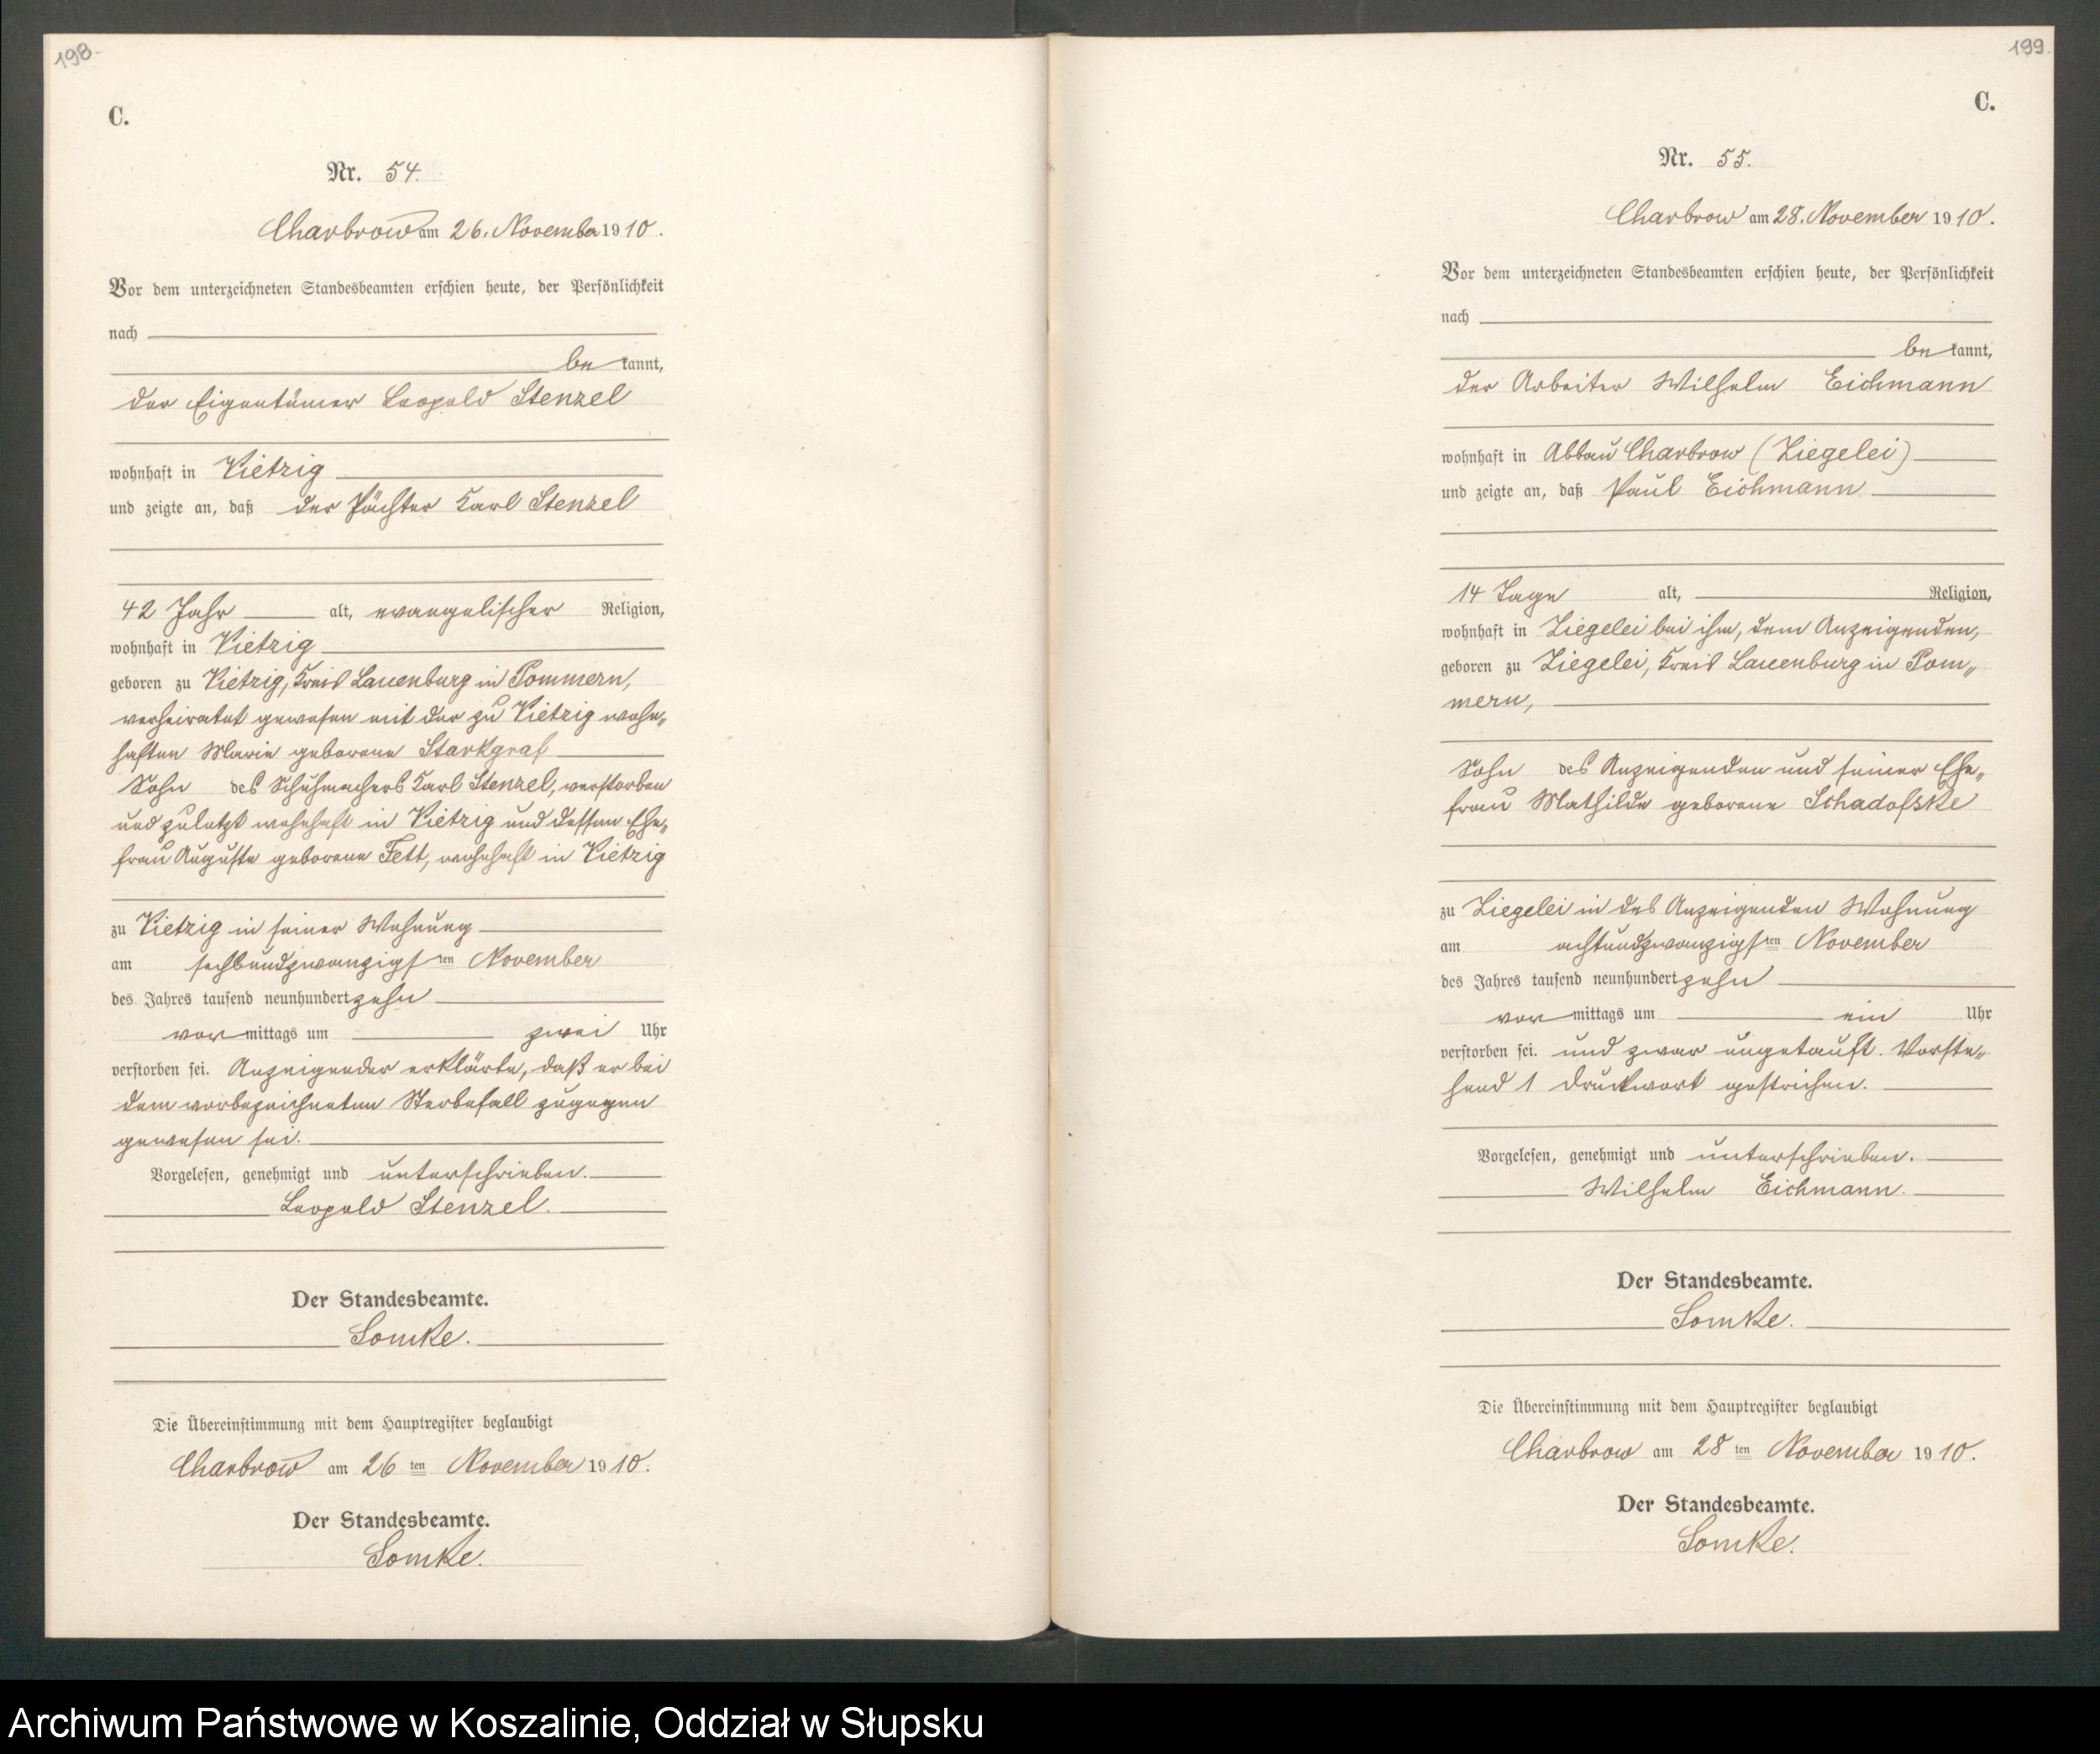 198.
C.
Nr. 54.
Charbrow am 26. November 1910.
Vor dem unterzeichneten Standesbeamten erschien heute, der Persönlichkeit
nach
be kannt,
der Eigentümer Leopold Stenzel
wohnhaft in Vietzig
und zeigte an, daß der Pächter Karl Stenzel
42 Jahr alt, evangelischer Religion,
wohnhaft in Vietzig
geboren zu Vietzig, Kreis Lauenburg in Pommern,
verheiratet gewesen mit der zu Vietzig wohn„
haften Marie geborene Starkgraf
Sohn des Schuhmachers Karl Stenzel, verstorben
und zuletzt wohnhaft in Vietzig und dessen Ehe„
frau Auguste geborene Fett, wohnhaft in Vietzig
zu Vietzig in seiner Wohnung
am sechsundzwanzigsten November
des Jahres tausend neunhundertzehn
vormittags um zwei Uhr
verstorben sei. Anzeigender erklärte, daß er bei
dem vorbezeichneten Sterbefall zugegen
gewesen sei.
Vorgelesen, genehmigt und unterschrieben.
Leopold Stenzel.
Der Standesbeamte.
Lomke.
Die Übereinstimmung mit dem Hauptregister beglaubigt
Charbrow am 26 ten November 1910.
Der Standesbeamte.
Lomke.
199.
C.
Nr. 55.
Charbrow am 28. November 1910.
Vor dem unterzeichneten Standesbeamten erschien heute, der Persönlichkeit
nach
be kannt,
der Arbeiter Wilhelm Eichmann
wohnhaft in Abbau Charbrow (Ziegelei)
und zeigte an, daß Paul Eichmann
14 Tage alt, Religion,
wohnhaft in Ziegelei bei ihm, dem Anzeigenden,
geboren zu Ziegelei, Kreis Lauenburg in Pom„
mern,
Sohn des Anzeigenden und seiner Ehe„
frau Mathilde geborene Schadofske
zu Ziegelei in des Anzeigenden Wohnung
am achtundzwanzigsten November
des Jahres tausend neunhundertzehn
vormittags um ein Uhr
verstorben sei. und zwar ungetauft. Vorste„
hend 1 Druckwort gestrichen.
Vorgelesen, genehmigt und unterschrieben.
Wilhelm Eichmann.
Der Standesbeamte.
Lomke.
Die Übereinstimmung mit dem Hauptregister beglaubigt
Charbrow am 28 ten November 1910.
Der Standesbeamte.
Lomke.
Archiwum Państwowe w Koszalinie, Oddział w Słupsku